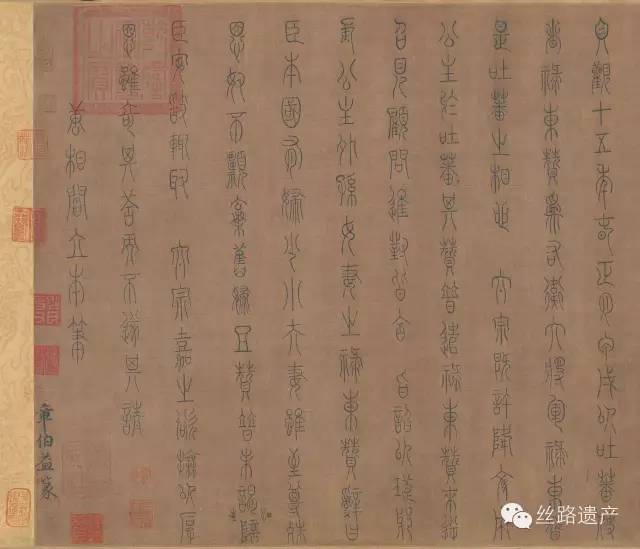 貞觀十五年春正月甲戌以吐蕃使
者祿東贊爲右衛大將軍祿東贊
是吐蕃之相也 太宗既許降文成
公主於吐蕃其贊普遣祿東贊來逆
召見顧問進對皆合 旨詔以琅邪
長公主外孫女妻之祿東贊辭曰
臣本國有婦少小夫妻雖至尊殊
恩奴不願棄舊婦且贊普未謁陪
臣安敢輒取 太宗嘉之欲撫以厚
恩雖奇其答而不遂其請
唐相閻立本筆
章伯益篆
丝路遗产